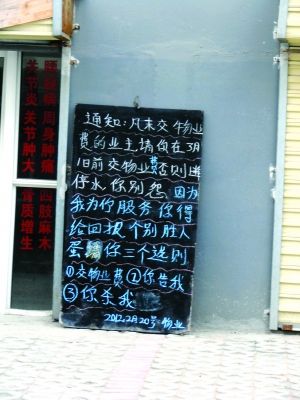 通知：凡未交物业
费的业主请你在3月
1日前交物业费否则进
停水你别怨因为
我为你服务你得
给回报个别胜人
蛋请你三个选则
①交物业费②你告我
③你杀我
2012.2月20号 物业
腰腿病 周身肿痛
关节炎 关节肿大
四肢麻木
骨质增生